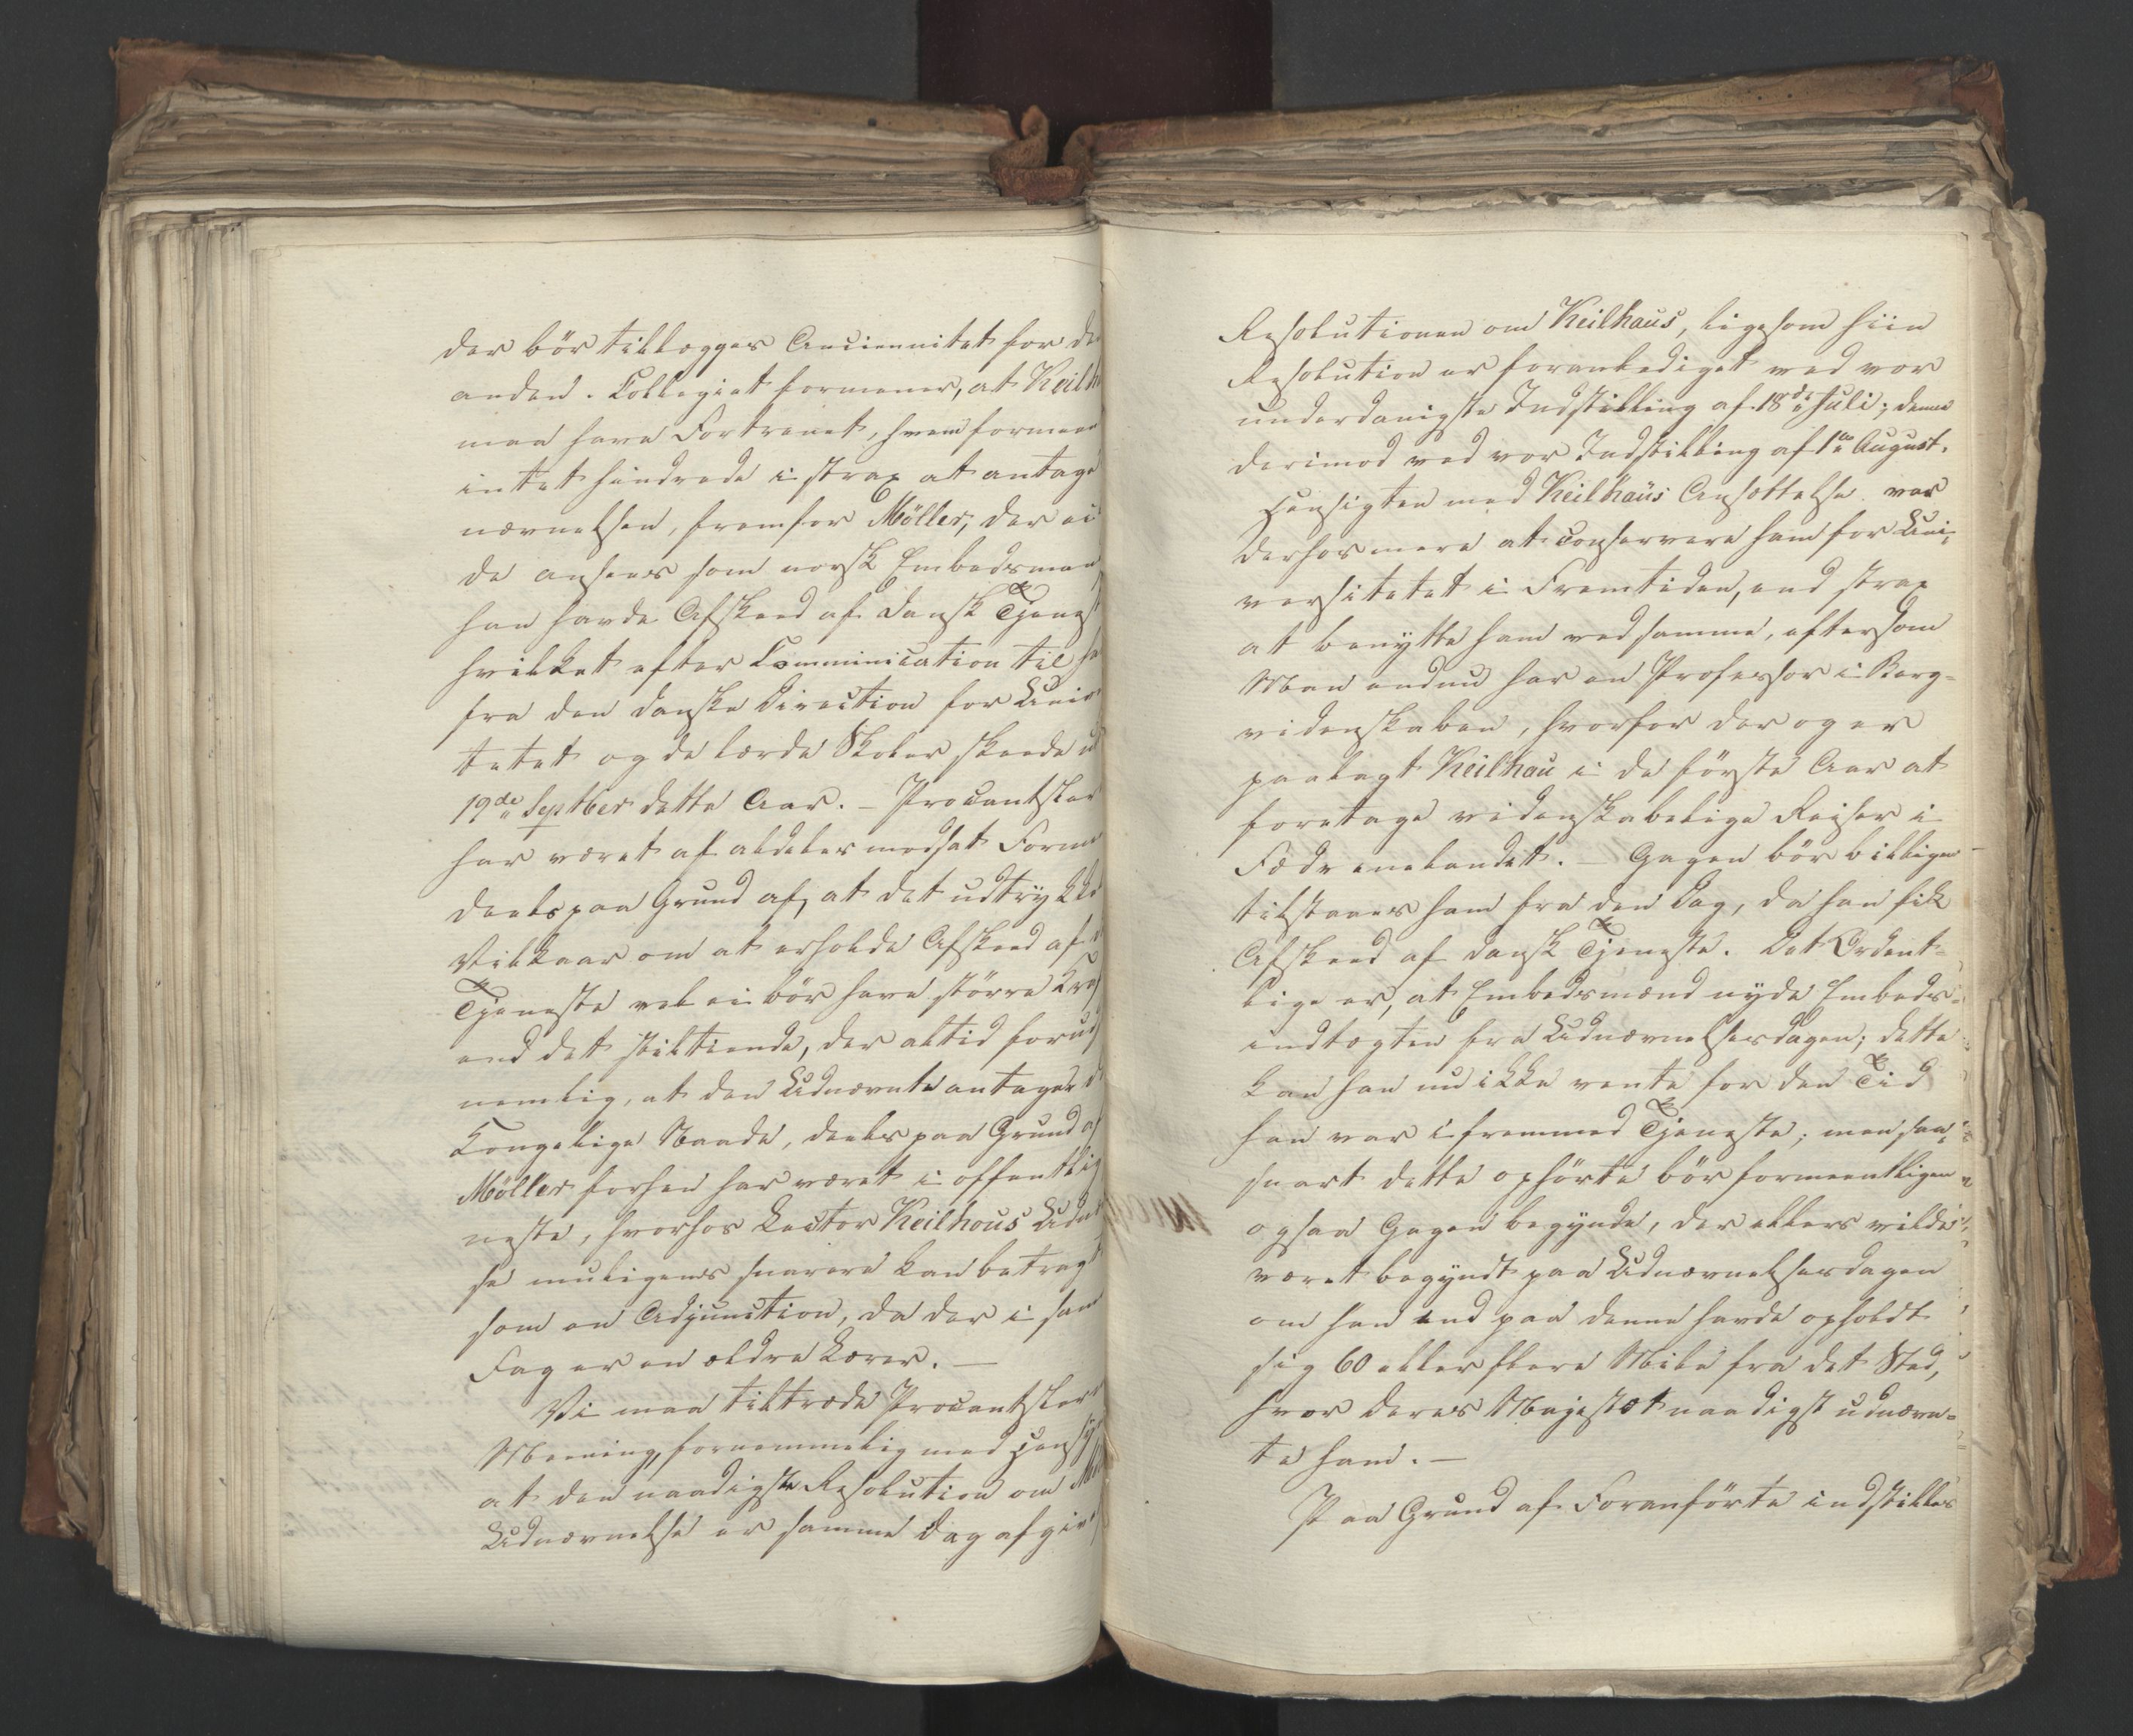 der bör tillægges Anciennitet for de
anden. Collegiet formener, at Keilh
maa have Fortrinet, hvem formeen
intet hindrede i strax at antage
nævnelsen, fremfor Möller, der ei
da ansees som norsk Embedsman
han havde Afskeed af dansk Tjenest
hvilket efter Communication til ha
fra den danske Direction for Univer
tetet og de lærde Skoler skeede u
19de Septber dette Aar. - Procantsler
har været af aldeles modsat Forme
deels paa Grund af, at det udtrykke
Vilkaar om at erholde Afskeed af d
Tjeneste vel ei bör have större Kra
end det stiltiende, der altid foruds
nemlig, at den Udnævnte antager d
Kongelige Naade, deels paa Grund af
Möller forhen har været i offentlig
neste, hvorhos Lector Keilhous Udnæ
se muligens snarere kan betragt
som en Adjunction, da der i sam
Fag er en ældre Lærer. —
Vi maa tiltræde Procantsler
Meening, fornemmelig med Hensy
at den naadigste Resolution om Möl
Udnævnelse er samme Dag afgiv
Resolutionen om Keilhaus, ligesom hiin
Resolution er foranlediget ved vor
underdanigste Indstilling af 18de Juli; denne
derimod ved vor Indstilling af 1ste August.
Hensigten med Keilhaus Ansættelse var
derhos mere at conservere ham for Uni-
versitetet i Fremtiden, end strax
at benytte ham ved samme, eftersom
Man endnu har en Professor i Berg-
videnskaben, hvorfor der og er
paalagt Keilhau i de förste Aar at
foretage videnskabelige Reiser i
Fædrenelandet. — Gagen bör billigen
tilstaaes ham fra den Dag, da han fik
Afskeed af dansk Tjeneste. Det Ordent-
lige er, at Embedsmænd nyde Embeds-
indtægten fra Udnævnelsesdagen; dette
kan han nu ikke vente for den Tid
han var i fremmed Tjeneste; men saa-
snart dette ophörte bör formeentligen
ogsaa Gagen begynde, der ellers vilde
været begyndt paa Udnævnelsesdagen
om han end paa denne havde opholdt
sig 60 eller flere Mile fra det Sted,
hvor Deres Majestæt naadigst udnævn-
te ham. —
Paa Grund af Foranförte indstilles